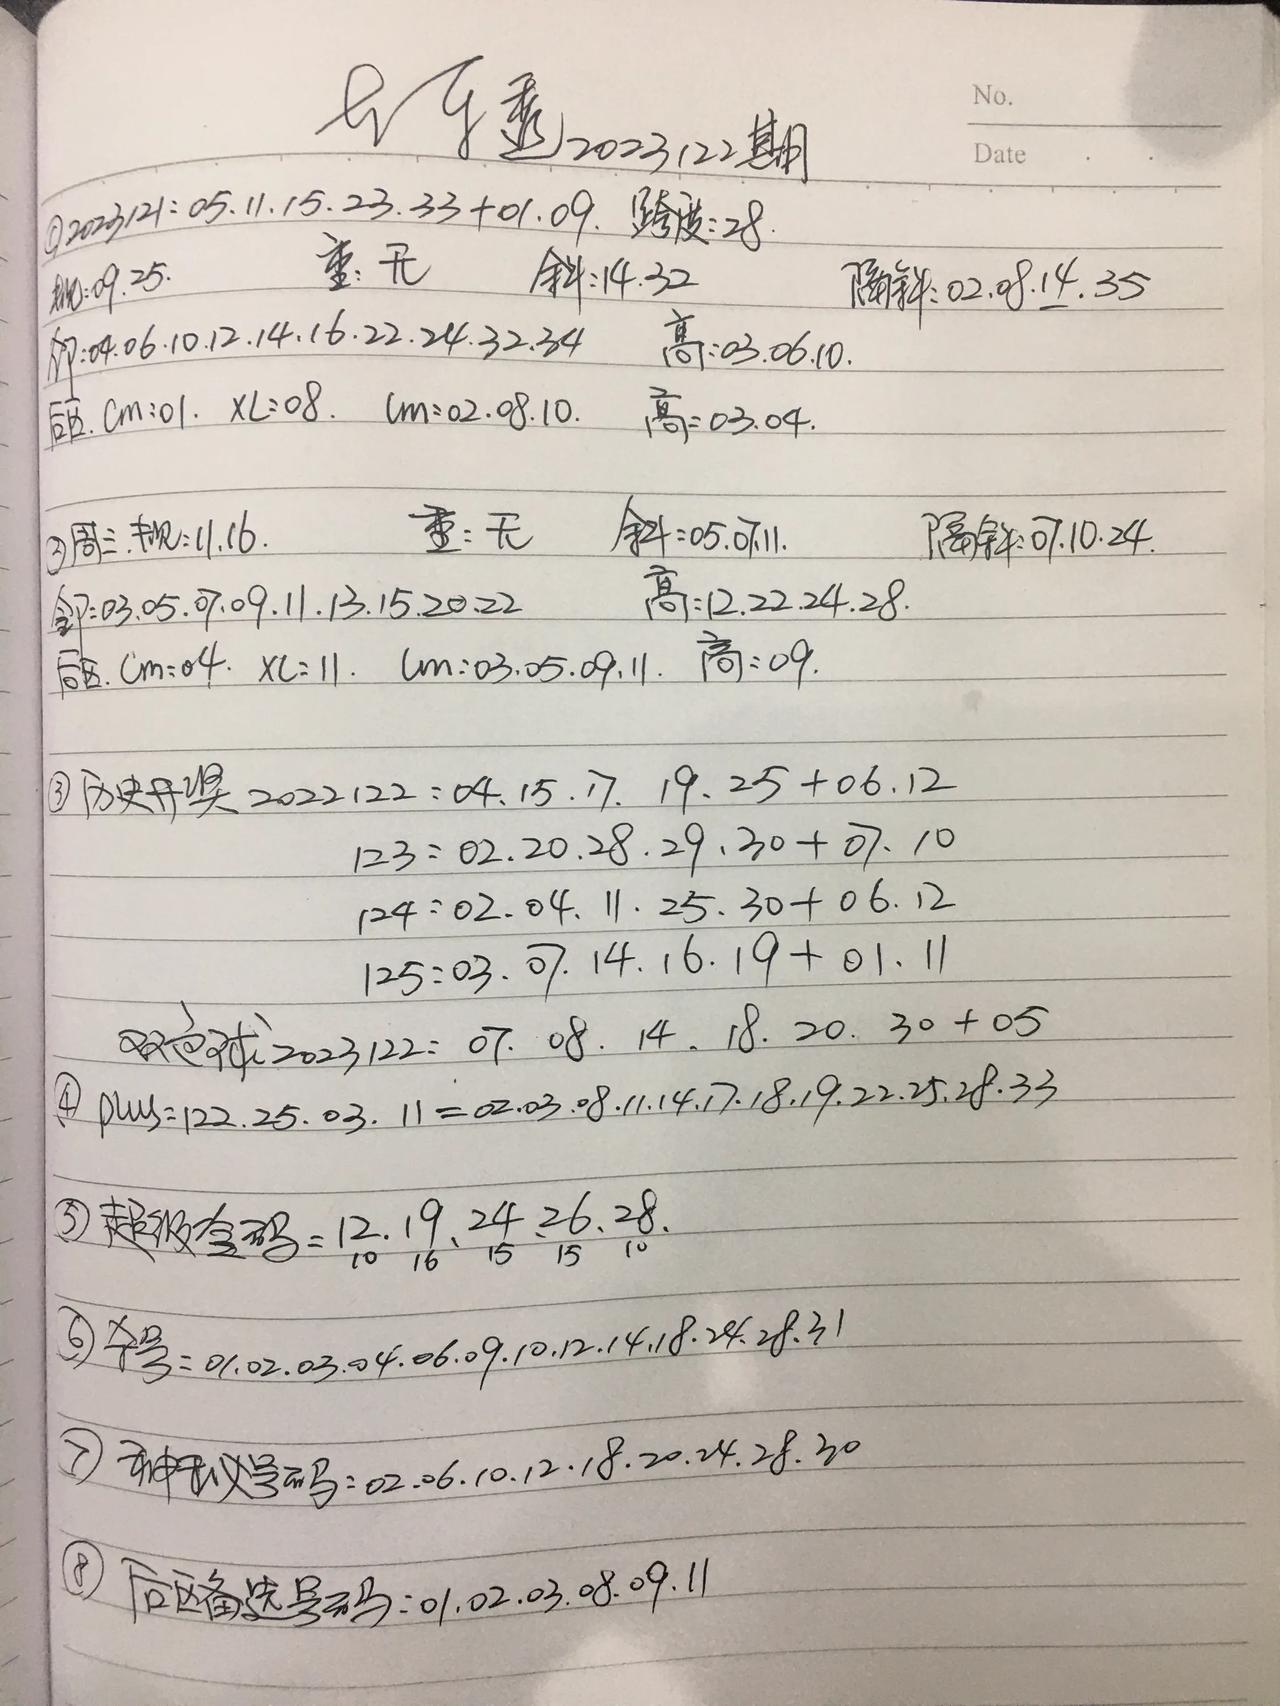 大乐透2023122期
No.
Date
①2023121:05.11.15.23.33+01.09. 跨度:28.
规:09.25. 重:无 斜:14.32 隔斜:02.08.14.35
邻:04.06.10.12.14.16.22.24.32.34 高:03.06.10.
后区.Cm:01. XL:08. Lm:02.08.10. 高:03.04.
②周三.规:11.16. 重:无 斜:05.07.11. 隔斜:07.10.24.
邻:03.05.07.09.11.13.15.20.22 高:12.22.24.28.
后区.Cm:04. XL:11. Lm:03.05.09.11. 高:09.
③历史开奖2022122:04.15.17.19.25+06.12
123:02.20.28.29.30+07.10
124:02.04.11.25.30+06.12
125:03.07.14.16.19+01.11
双色球2023122:07.08.14.18.20.30+05
④plus=122.25.03.11=02.03.08.11.14.17.18.19.22.25.28.33
⑤超级金码=12.19.24.26.28.
10 16 15 15 10
⑥本号=01.02.03.04.06.09.10.12.14.18.24.28.31
⑦号码:02.06.10.12.18.20.24.28.30
⑧后区备选号码:01.02.03.08.09.11